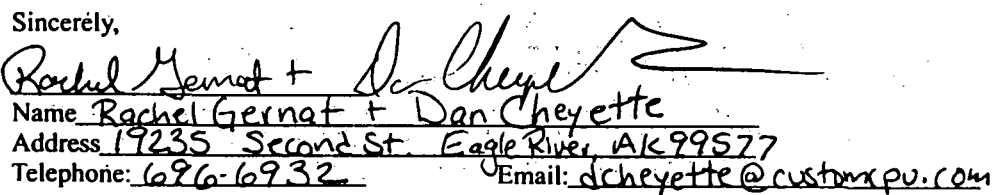 Sincerely,
Rachel Gernat + Dan Cheyette
Name Rachel Gernat + Dan Cheyette
Address 19235 Second St. Eagle River, AK 99577
Telephone: 696-6932 Email: dcheyette@customcpu.com